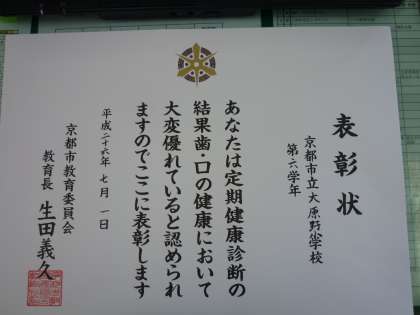 表彰状
京都市立大原野小学校
第六学年
あなたは定期健康診断の
結果歯・口の健康において
大変優れていると認められ
ますのでここに表彰します
平成二十六年七月一日
京都市教育委員会
教育長 生田義久